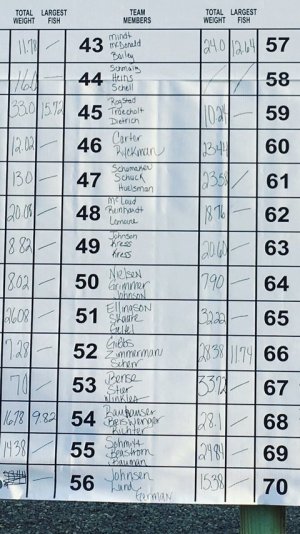 TOTAL WEIGHT LARGEST FISH TEAM MEMBERS TOTAL WEIGHT LARGEST FISH
11.78 — 43 Mindt McDonald Bailey 24.0 12.64 57
16.0 — 44 Schmaig Heins Schell 58
33.0 15.72 45 Rogstad Troecholt Dietrich 10.24 — 59
12.02 — 46 Carter Ryckman 23.44 — 60
13.0 — 47 Schumacher Schuck Huelsman 23.58 — 61
20.08 — 48 McLaud Reinhardt Lemaire 18.76 — 62
8.82 — 49 Johnson Kress Kress 20.60 — 63
8.02 — 50 Nielsen Grimmer Johnson 7.90 — 64
26.08 — 51 Ellingson Skaare 32.22 — 65
7.28 — 52 Gibbs Zimmerman Scherr 28.38 11.74 66
7.0 — 53 Bense Stier 33.72 — 67
16.78 9.82 54 Richter 28.1 — 68
14.38 — 55 Schmitt Beastrom Bauman 29.84 — 69
— 56 Johnsen Lund 15.38 — 70